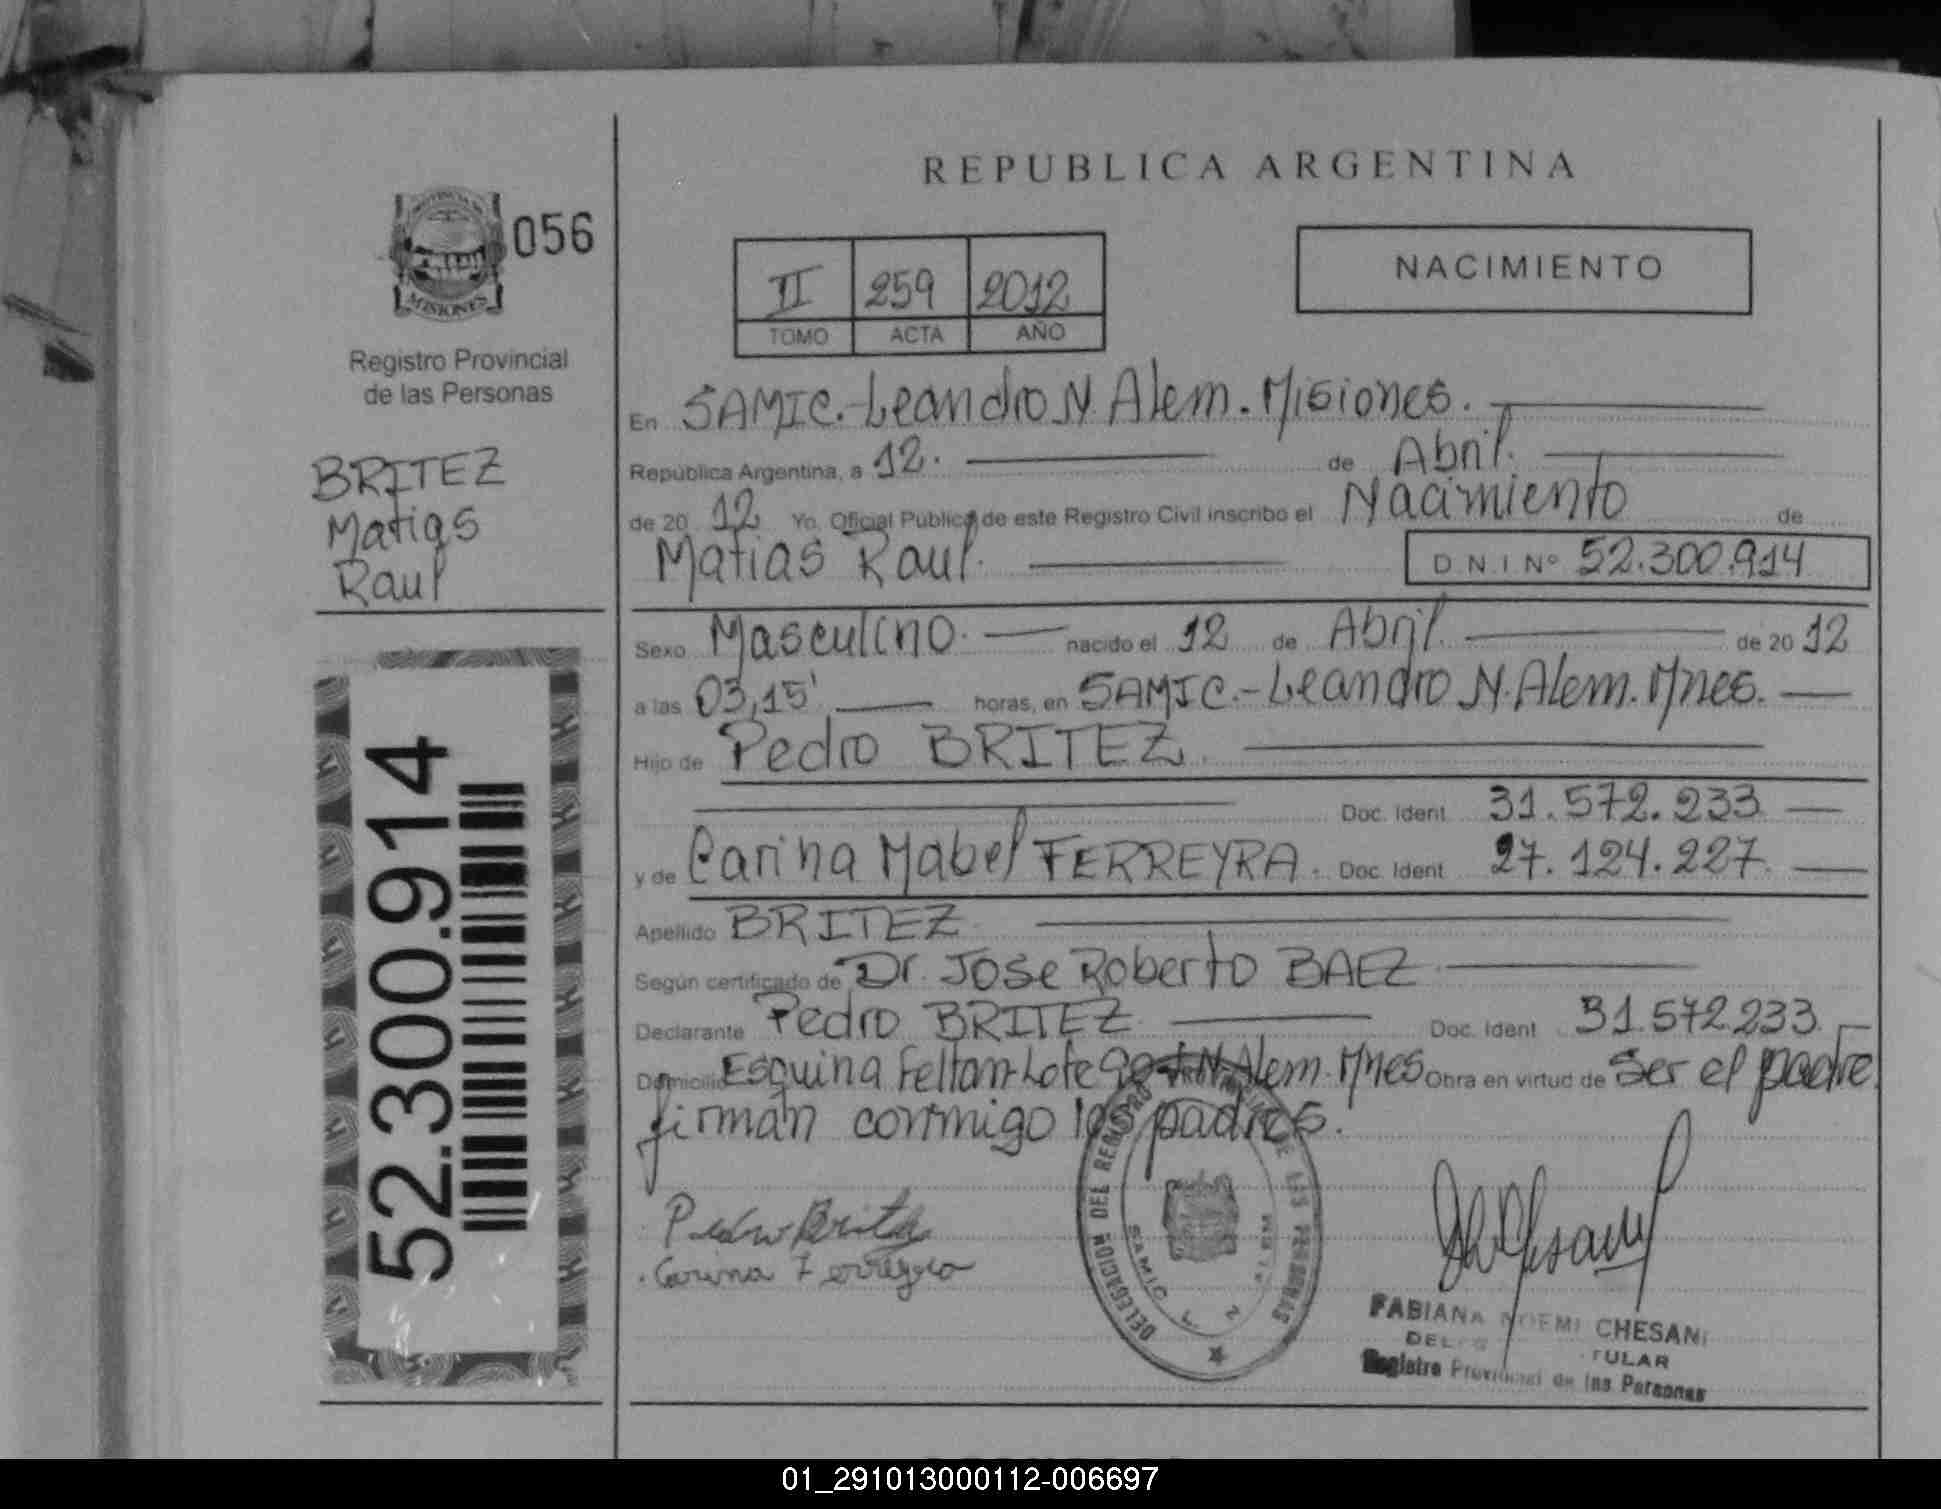 REPUBLICA ARGENTINA
PROVINCIA DE
MISIONES
056
Registro Provincial
de las Personas
BRITEZ
Matias
Raul
52.300.914
II 259 2012
TOMO ACTA AÑO
NACIMIENTO
En SAMIC.-Leandro N. Alem. Misiones.
República Argentina, a 12. de Abril.
de 20 12 Yo. Oficial Público de este Registro Civil inscribo el Nacimiento de
Matias Raul. D.N.I Nº 52.300.914
Sexo Masculino. nacido el 12 de Abril. de 20 12
a las 03,15' horas, en SAMIC.-Leandro N. Alem. Mnes.
Hijo de Pedro BRITEZ.
Doc. Ident 31.572.233
y de Carina Mabel FERREYRA. Doc. Ident 27.124.227.
Apellido BRITEZ
Según certificado de Dr. Jose Roberto BAEZ.
Declarante Pedro BRITEZ. Doc. Ident 31.572.233.
Domicilio Esquina Feltan-Lote N. Alem. Mnes Obra en virtud de ser el padre.
firman conmigo los padres.
Pedro Britez
Carina Ferreyra
DELEGACION DEL REGISTRO DE LAS PERSONAS
SAMIC L. N. ALEM
FABIANA NOEMI CHESANI
TULAR
Registro Provincial de las Personas
01_291013000112-006697